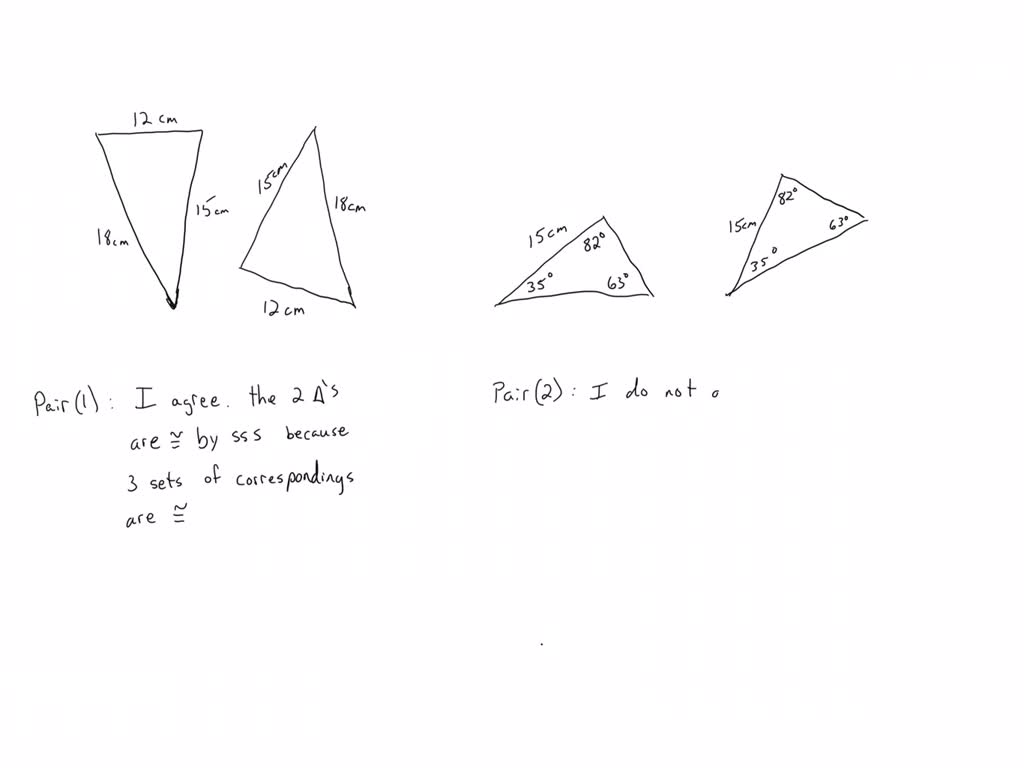 12 cm
18cm
15cm
15cm
18cm
12 cm
15cm
82°
35°
63°
15cm
82°
63°
35°
Pair (1): I agree. the 2 Δ's
are ≅ by sss because
3 sets of correspondings
are ≅
Pair (2): I do not a